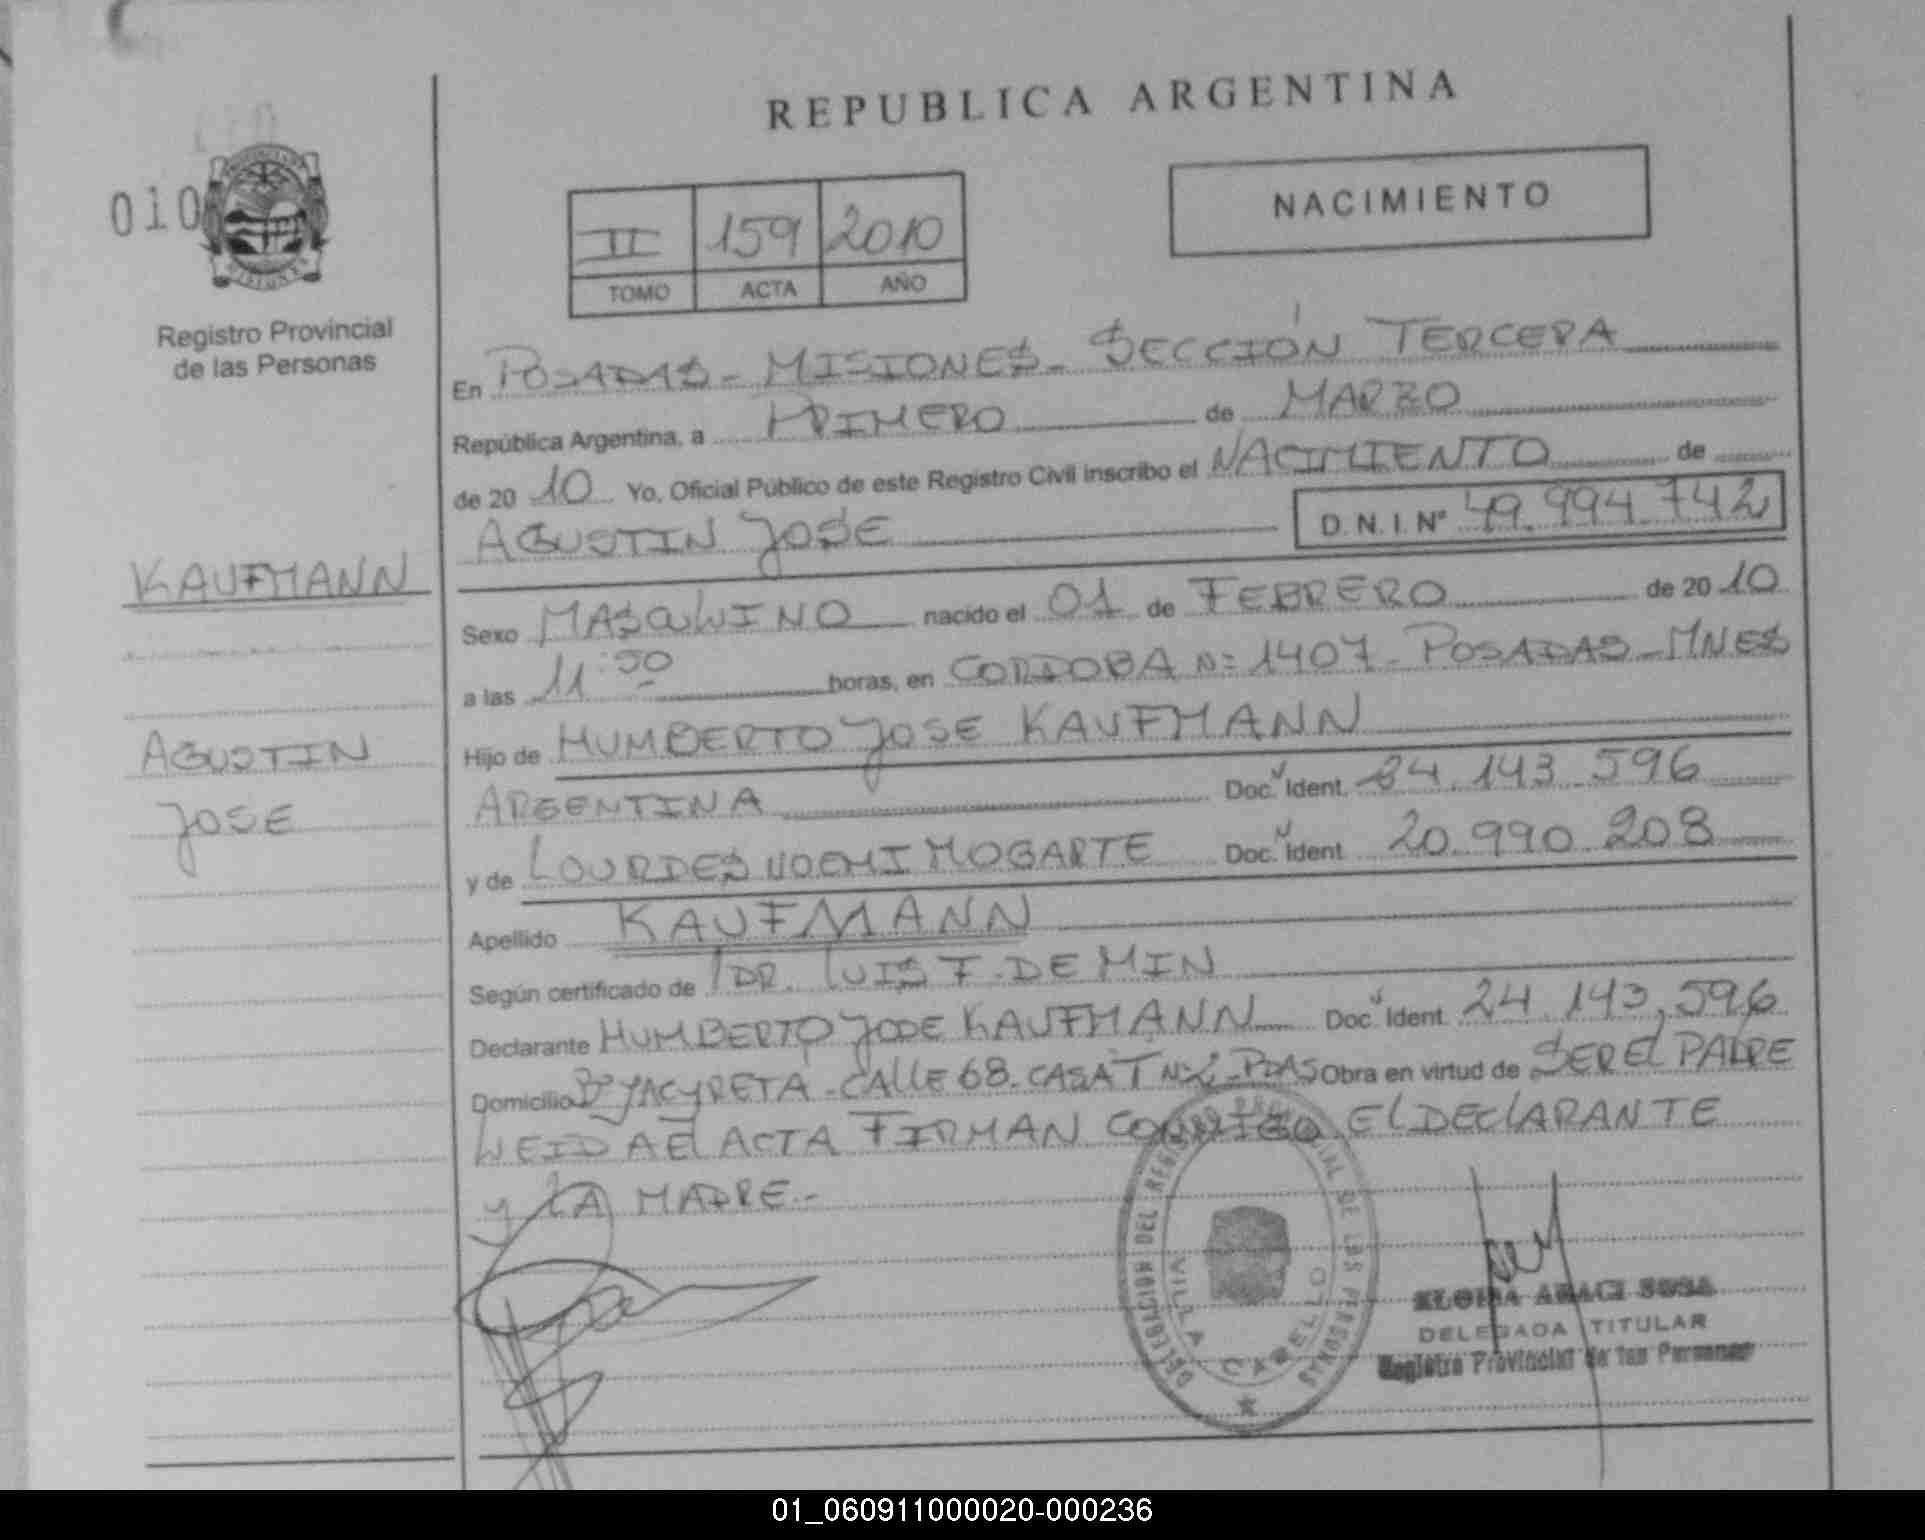 REPUBLICA ARGENTINA
NACIMIENTO
010
II 159 2010
TOMO ACTA AÑO
Registro Provincial
de las Personas
En POSADAS - MISIONES - SECCIÓN TERCERA
República Argentina, a PRIMERO de MARZO
de 20 10 Yo, Oficial Público de este Registro Civil inscribo el NACIMIENTO de
AGUSTIN JOSE D.N.I. Nº 49.994.742
KAUFMANN
Sexo MASCULINO nacido el 01 de FEBRERO de 20 10
a las 11:50 horas, en CORDOBA Nº 1407 - POSADAS - MNES
AGUSTIN
JOSE
Hijo de HUMBERTO JOSE KAUFMANN
ARGENTINA Doc. Ident. 24.143.596
y de LOURDES NOEMI MOGARTE Doc. Ident. 20.990.208
Apellido KAUFMANN
Según certificado de DR. LUIS F. DE MIN
Declarante HUMBERTO JOSE KAUFMANN Doc. Ident. 24.143.596
Domicilio Bº YACYRETA - CALLE 68 - CASA T Nº 2 - PDAS Obra en virtud de SER EL PADRE
LEIDA EL ACTA FIRMAN CONMIGO EL DECLARANTE
y LA MADRE.-
DELEGACION DEL REGISTRO PROVINCIAL DE LAS PERSONAS
VILLA CABELLO
ELOISA ARACI SOSA
DELEGADA TITULAR
Registro Provincial de las Personas
01_060911000020-000236